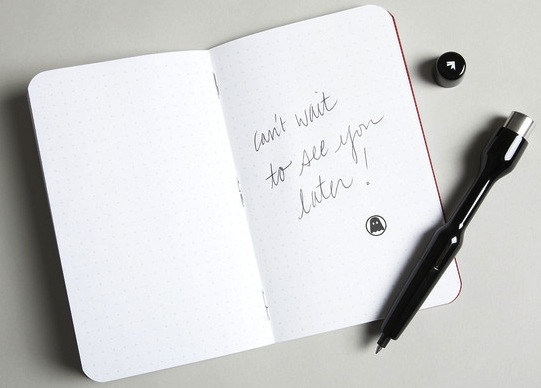 can't wait
to see you
later!